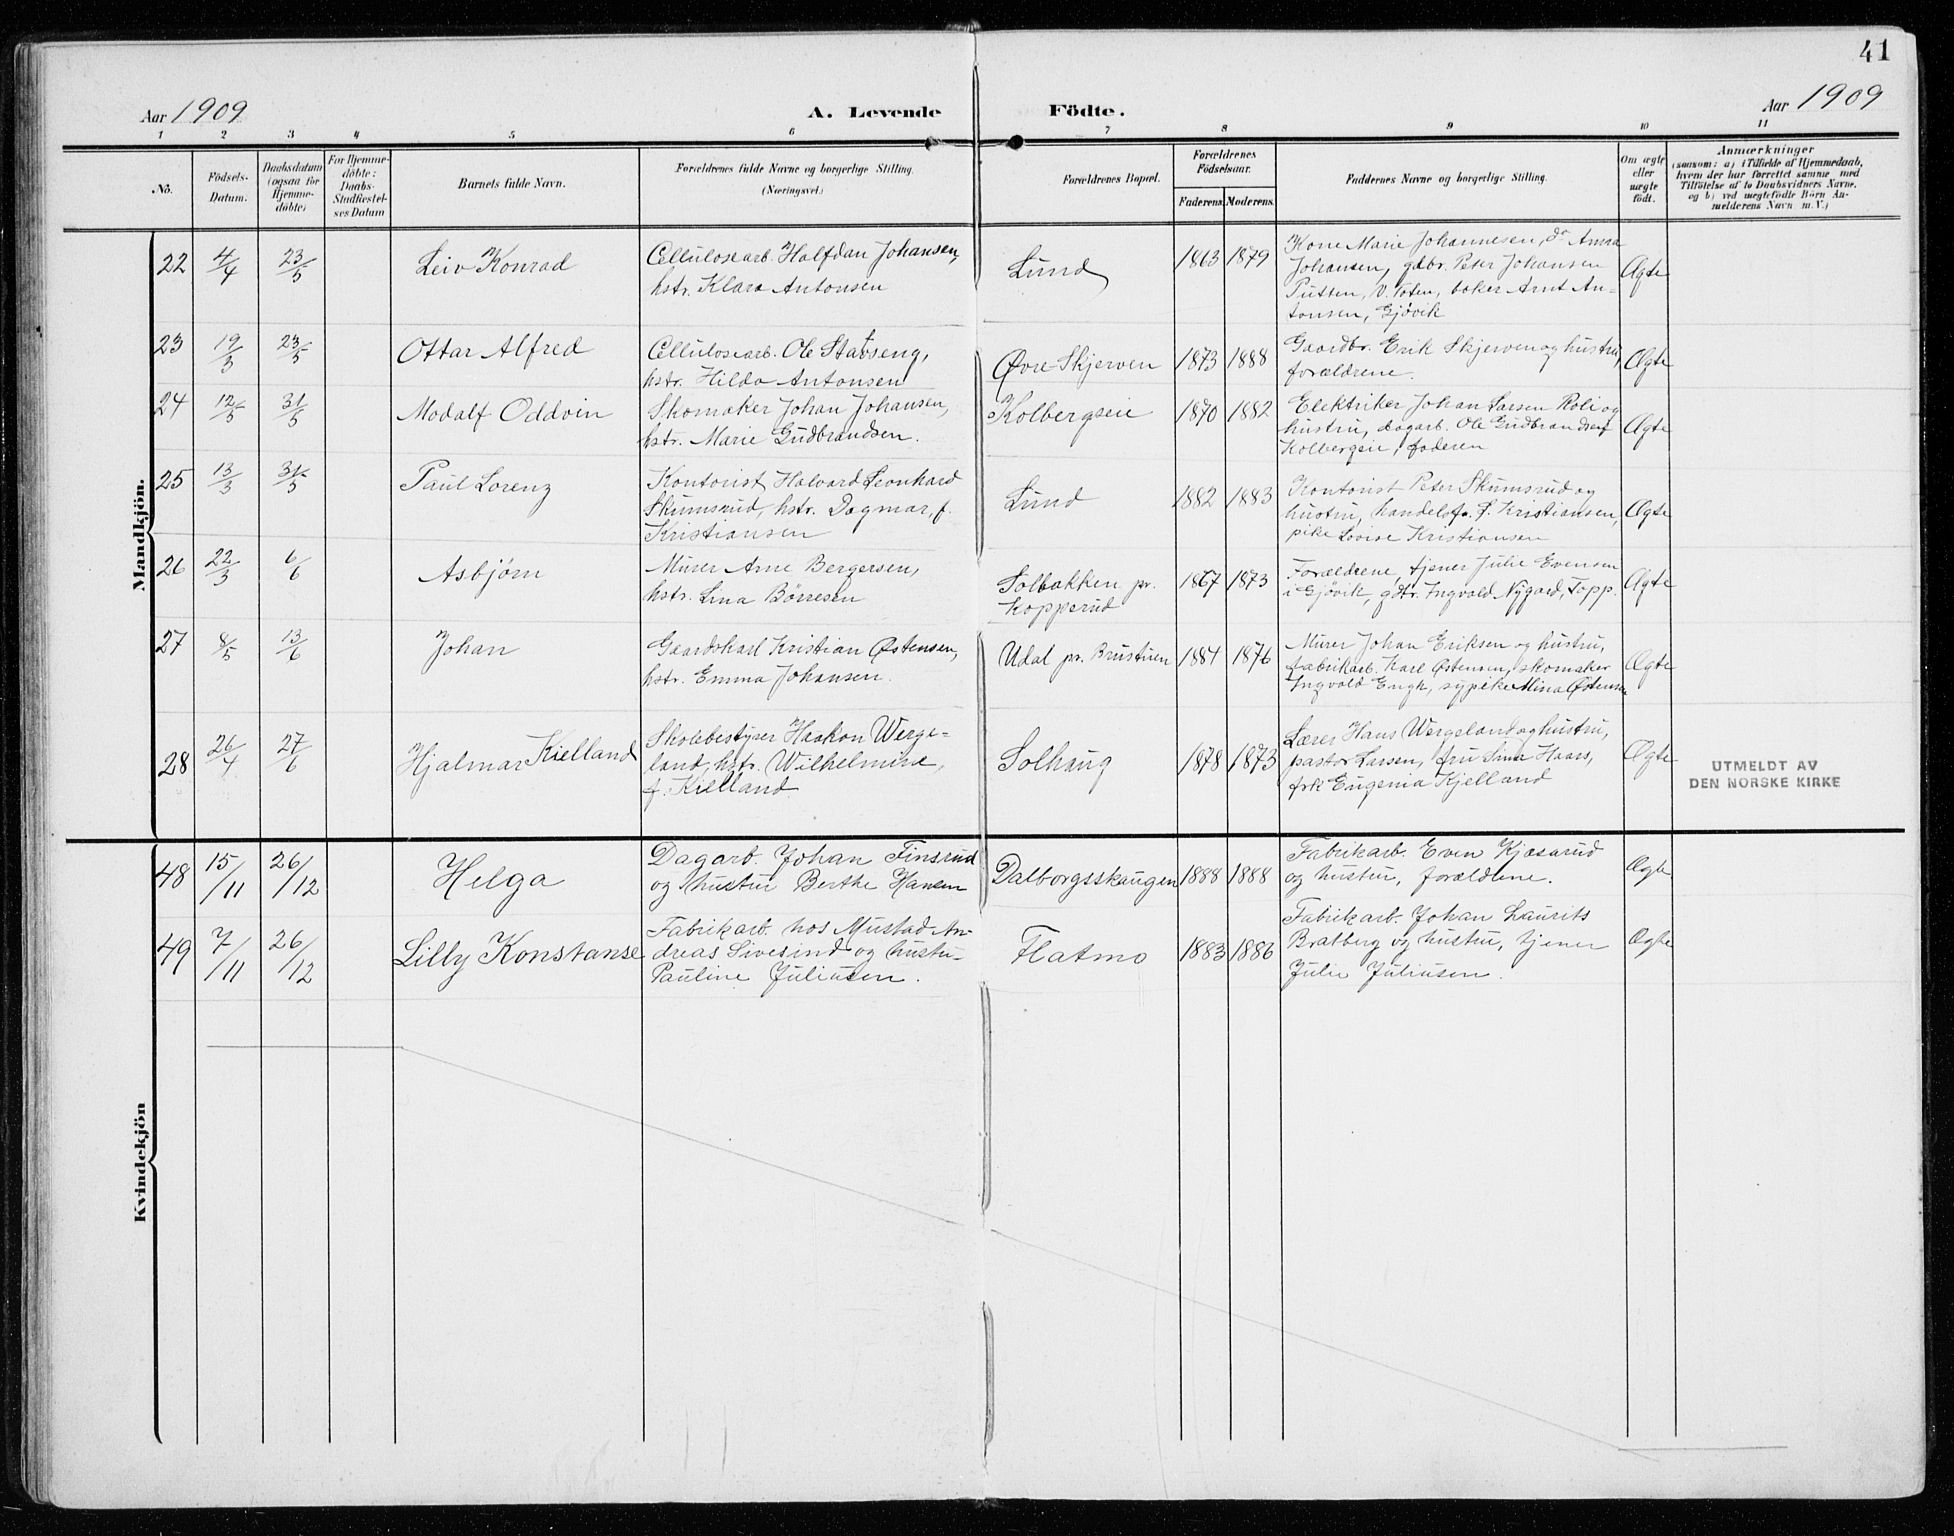 41
Aar 1909
A. Levende Födte.
Aar 1909
1 2 3 4 5 6 7 8 9 10 11
No.
Födsels-
Datum.
Daabsdatum
(ogsaa for
Hjemme-
döbte)
For Hjemme-
döbte:
Daabs-
Stadfæstel-
ses Datum
Barnets fulde Navn.
Forældrenes fulde Navne og borgerlige Stilling.
(Næringsvei.)
Forældrenes Bopæl.
Forældrenes
Födselsaar.
Faderens.
Moderens.
Faddernes Navne og borgerlige Stilling.
Om ægte
eller
uægte
födt.
Anmærkninger
(saasom: a) i Tilfælde af Hjemmedaab,
hvem der har forrettet samme, med
Tilföielse af to Daabsvidners Navne,
og b) ved uægtefödte Börn An-
melderens Navn m. V.)
Mandkjön.
22 4/4 23/5 Leiv Konrad
Cellulosearb. Halfdan Johansen,
hstr. Klara Antonsen
Lund 1863 1879
Kone Marie Johannesen, do Anna
Johansen, gdbr. Peter Johansen
Putten, V. Toten, baker Arnt An-
tonsen, Gjøvik
Ægte
23 19/3 23/5 Ottar Alfred
Cellulosearb. Ole Stavseng,
hstr. Hilda Antonsen
Øvre Skjerven 1873 1888
Gaardbr. Erik Skjerven og hustru,
forældrene.
Ægte
24 12/5 31/5 Modalf Oddvin
Skomaker Johan Johansen,
hstr. Marie Gudbrandsen.
Kolbergseie 1870 1882
Elektriker Johan Larsen Roli og
hustru, dagarb. Ole Gudbrandsen
Kolbergseie, faderen
Ægte
25 13/3 31/5 Paul Lorenz
Kontorist Halvard Leonhard
Skumsrud, hstr. Dagmar, f.
Kristiansen
Lund 1882 1883
Kontorist Peter Skumsrud og
hustru, handelsf. Kristiansen,
pike Lovise Kristiansen
Ægte
26 22/3 6/6 Asbjörn
Murer Arne Bergersen,
hstr. Lina Börresen
Solbakken pr.
Kopperud
1867 1873
Forældrene, tjener Julie Evensen
i Gjøvik, gdbr. Ingvald Nygard, Topp.
Ægte
27 8/5 13/6 Johan
Gaardskarl Kristian Østensen,
hstr. Emma Johansen.
Udal pr. Brustuen 1884 1876
Murer Johan Eriksen og hustru,
fabrikarb. Karl Østensen, skomaker
Ingvald Engh, sypike Mina Østensen
Ægte
28 26/4 27/6 Hjalmar Kielland
Skolebestyrer Haakon Werge-
land, hstr. Wilhelmine,
f. Kielland
Solhaug 1878 1873
Lærer Hans Wergeland og hustru,
pastor Larsen, fru Lina Haars,
frk Eugenia Kjelland
Ægte
UTMELDT AV
DEN NORSKE KIRKE
Kvindekjön
48 15/11 26/12 Helga
Dagarb. Johan Finsrud
og hustru Berthe Hansen
Dalborgsskaugen 1888 1888
Fabrikarb. Even Kjæsarud
og hustru, forældrene.
Ægte
49 7/11 26/12 Lilly Konstanse
Fabrikarb. hos Mustad An-
dreas Sivesind og hustru
Pauline Juliusen.
Flatmo 1883 1886
Fabrikarb. Johan Laurits
Bratberg og hustru, tjener
Julie Juliusen.
Ægte